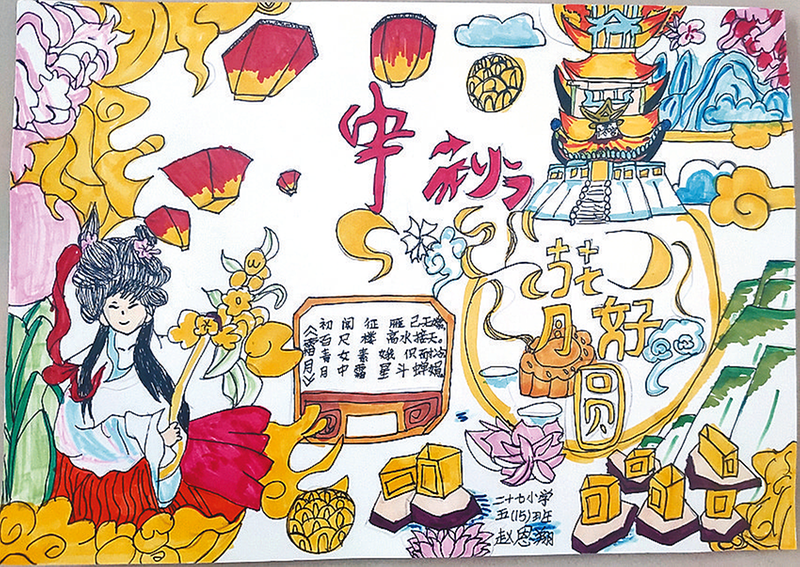 中秋
花好
月
圆
《霜月》
初闻征雁已无蝉,
百尺楼高水接天。
青女素娥俱耐冷
月中霜里斗婵娟
二十七小学
五(15)班
赵恩翔